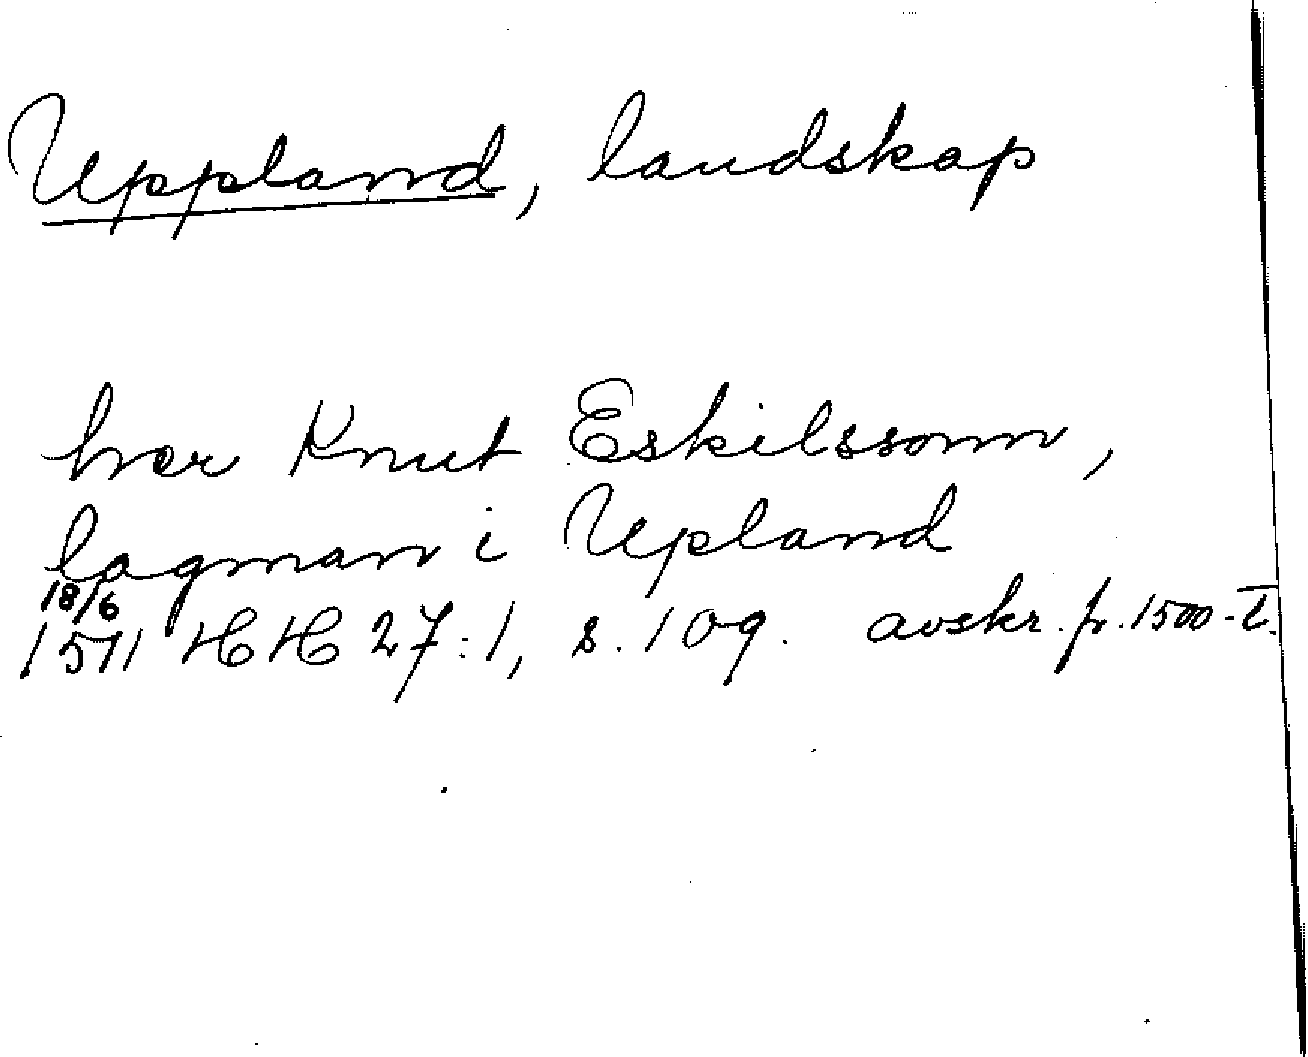 Uppland, landskap
her Knut Eskilssonn,
lagman i Upland
18/6
1511 HH 27:1, s. 109. avskr. fr. 1500-t.